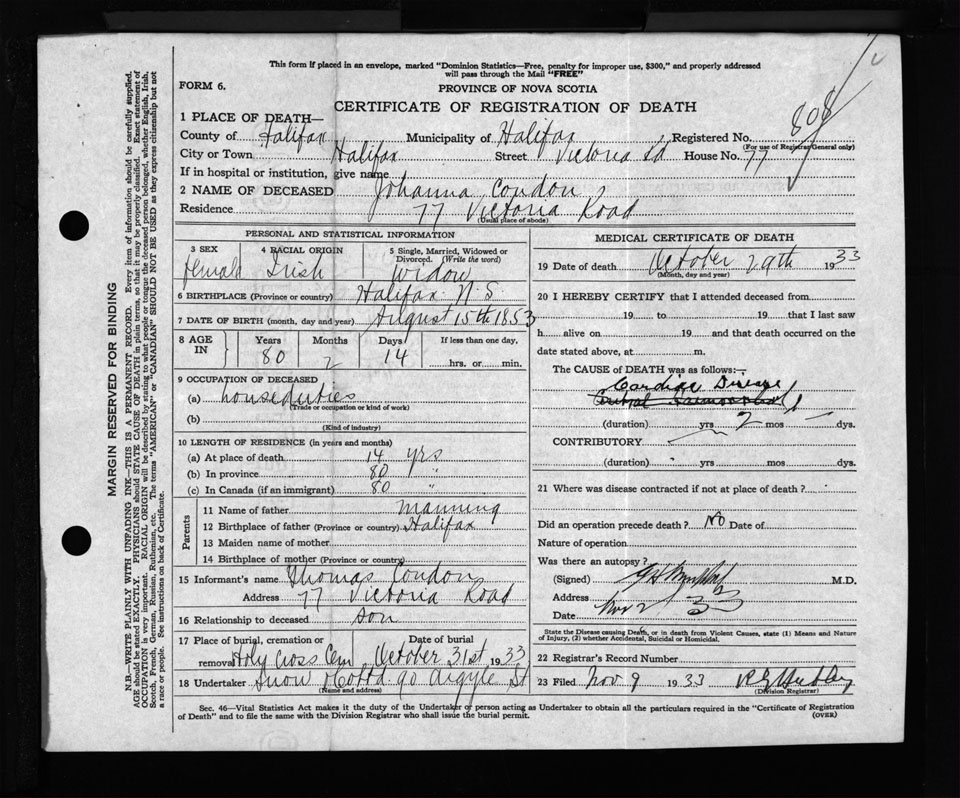 This form if placed in an envelope, marked "Dominion Statistics—Free, penalty for improper use, $300," and properly addressed
will pass through the Mail "FREE"
FORM 6.
PROVINCE OF NOVA SCOTIA
CERTIFICATE OF REGISTRATION OF DEATH
808
1 PLACE OF DEATH—
County of Halifax Municipality of Halifax Registered No.
(For use of Registrar General only)
City or Town Halifax Street Victoria Rd House No. 77
If in hospital or institution, give name
2 NAME OF DECEASED Johanna Condon
Residence 77 Victoria Road
(Usual place of abode)
PERSONAL AND STATISTICAL INFORMATION
3 SEX 4 RACIAL ORIGIN 5 Single, Married, Widowed or
Divorced. (Write the word)
female Irish widow
6 BIRTHPLACE (Province or country) Halifax N.S.
7 DATE OF BIRTH (month, day and year) August 15th 1853
8 AGE IN Years Months Days If less than one day,
80 2 14 hrs. or min.
9 OCCUPATION OF DECEASED
(a) houseduties
(Trade or occupation or kind of work)
(b)
(Kind of industry)
10 LENGTH OF RESIDENCE (in years and months)
(a) At place of death 14 yrs
(b) In province 80 "
(c) In Canada (if an immigrant) 80 "
Parents
11 Name of father Manning
12 Birthplace of father (Province or country) Halifax
13 Maiden name of mother
14 Birthplace of mother (Province or country)
15 Informant's name Thomas Condon
Address 77 Victoria Road
16 Relationship to deceased son
17 Place of burial, cremation or Date of burial
removal Holy Cross Cem October 31st 1933
18 Undertaker Snow 90 Argyle St
(Name and address)
MEDICAL CERTIFICATE OF DEATH
19 Date of death October 29th 1933
(Month, day and year)
20 I HEREBY CERTIFY that I attended deceased from
19 to 19 that I last saw
h alive on 19 and that death occurred on the
date stated above, at m.
The CAUSE of DEATH was as follows:—
Cardiac Disease
(duration) yrs 2 mos dys.
CONTRIBUTORY
(duration) yrs mos dys.
21 Where was disease contracted if not at place of death?
Did an operation precede death? No Date of
Nature of operation
Was there an autopsy?
(Signed) M.D.
Address
Date Nov 2 33
State the Disease causing Death, or in death from Violent Causes, state (1) Means and Nature
of Injury, (2) whether Accidental, Suicidal or Homicidal.
22 Registrar's Record Number
23 Filed Nov 9 1933
(Division Registrar)
Sec. 46—Vital Statistics Act makes it the duty of the Undertaker or person acting as Undertaker to obtain all the particulars required in the "Certificate of Registration
of Death" and to file the same with the Division Registrar who shall issue the burial permit.
(OVER)
MARGIN RESERVED FOR BINDING
N.B.—WRITE PLAINLY WITH UNFADING INK—THIS IS A PERMANENT RECORD. Every item of information should be carefully supplied.
AGE should be stated EXACTLY. PHYSICIANS should STATE CAUSE OF DEATH in plain terms, so that it may be properly classified. Exact statement of
OCCUPATION is very important. RACIAL ORIGIN will be described by stating to what people or tongue the deceased person belonged, whether English, Irish,
Scotch, French, German, Russian, Ruthenian, etc. The terms "AMERICAN" or "CANADIAN" SHOULD NOT BE USED as they express citizenship but not
a race or people. See instructions on back of Certificate.